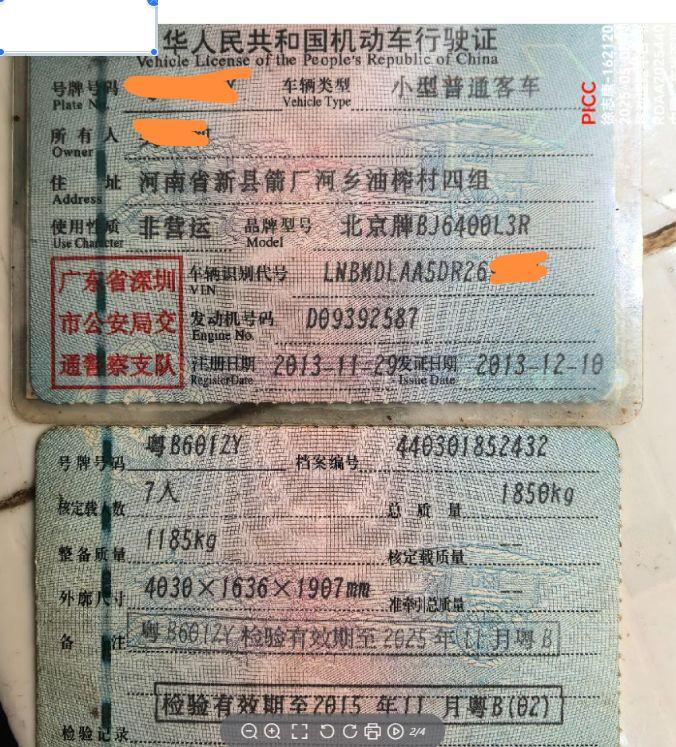 华人民共和国机动车行驶证
Vehicle License of the People's Republic of China
号牌号码 车辆类型 小型普通客车
Plate N Vehicle Type
所有人
Owner
住址 河南省新县箭厂河乡油榨村四组
Address
使用性质 非营运 品牌型号 北京牌BJ6400L3R
Use Character Model
广东省深圳
市公安局交
通警察支队
车辆识别代号 LNBMDLAA5DR26
VIN
发动机号码 D09392587
Engine No.
注册日期 2013-11-29 发证日期 2013-12-10
Register Date Issue Date
PICC
号牌号码 粤B601ZY 档案编号 440301852432
核定载人数 7人 总质量 1850kg
整备质量 1185kg 核定载质量 --
外廓尺寸 4030×1636×1907mm 准牵引总质量 --
备注 粤B601ZY 检验有效期至2025年11月粤B
检验记录 检验有效期至2015年11月粤B(02)
2/4